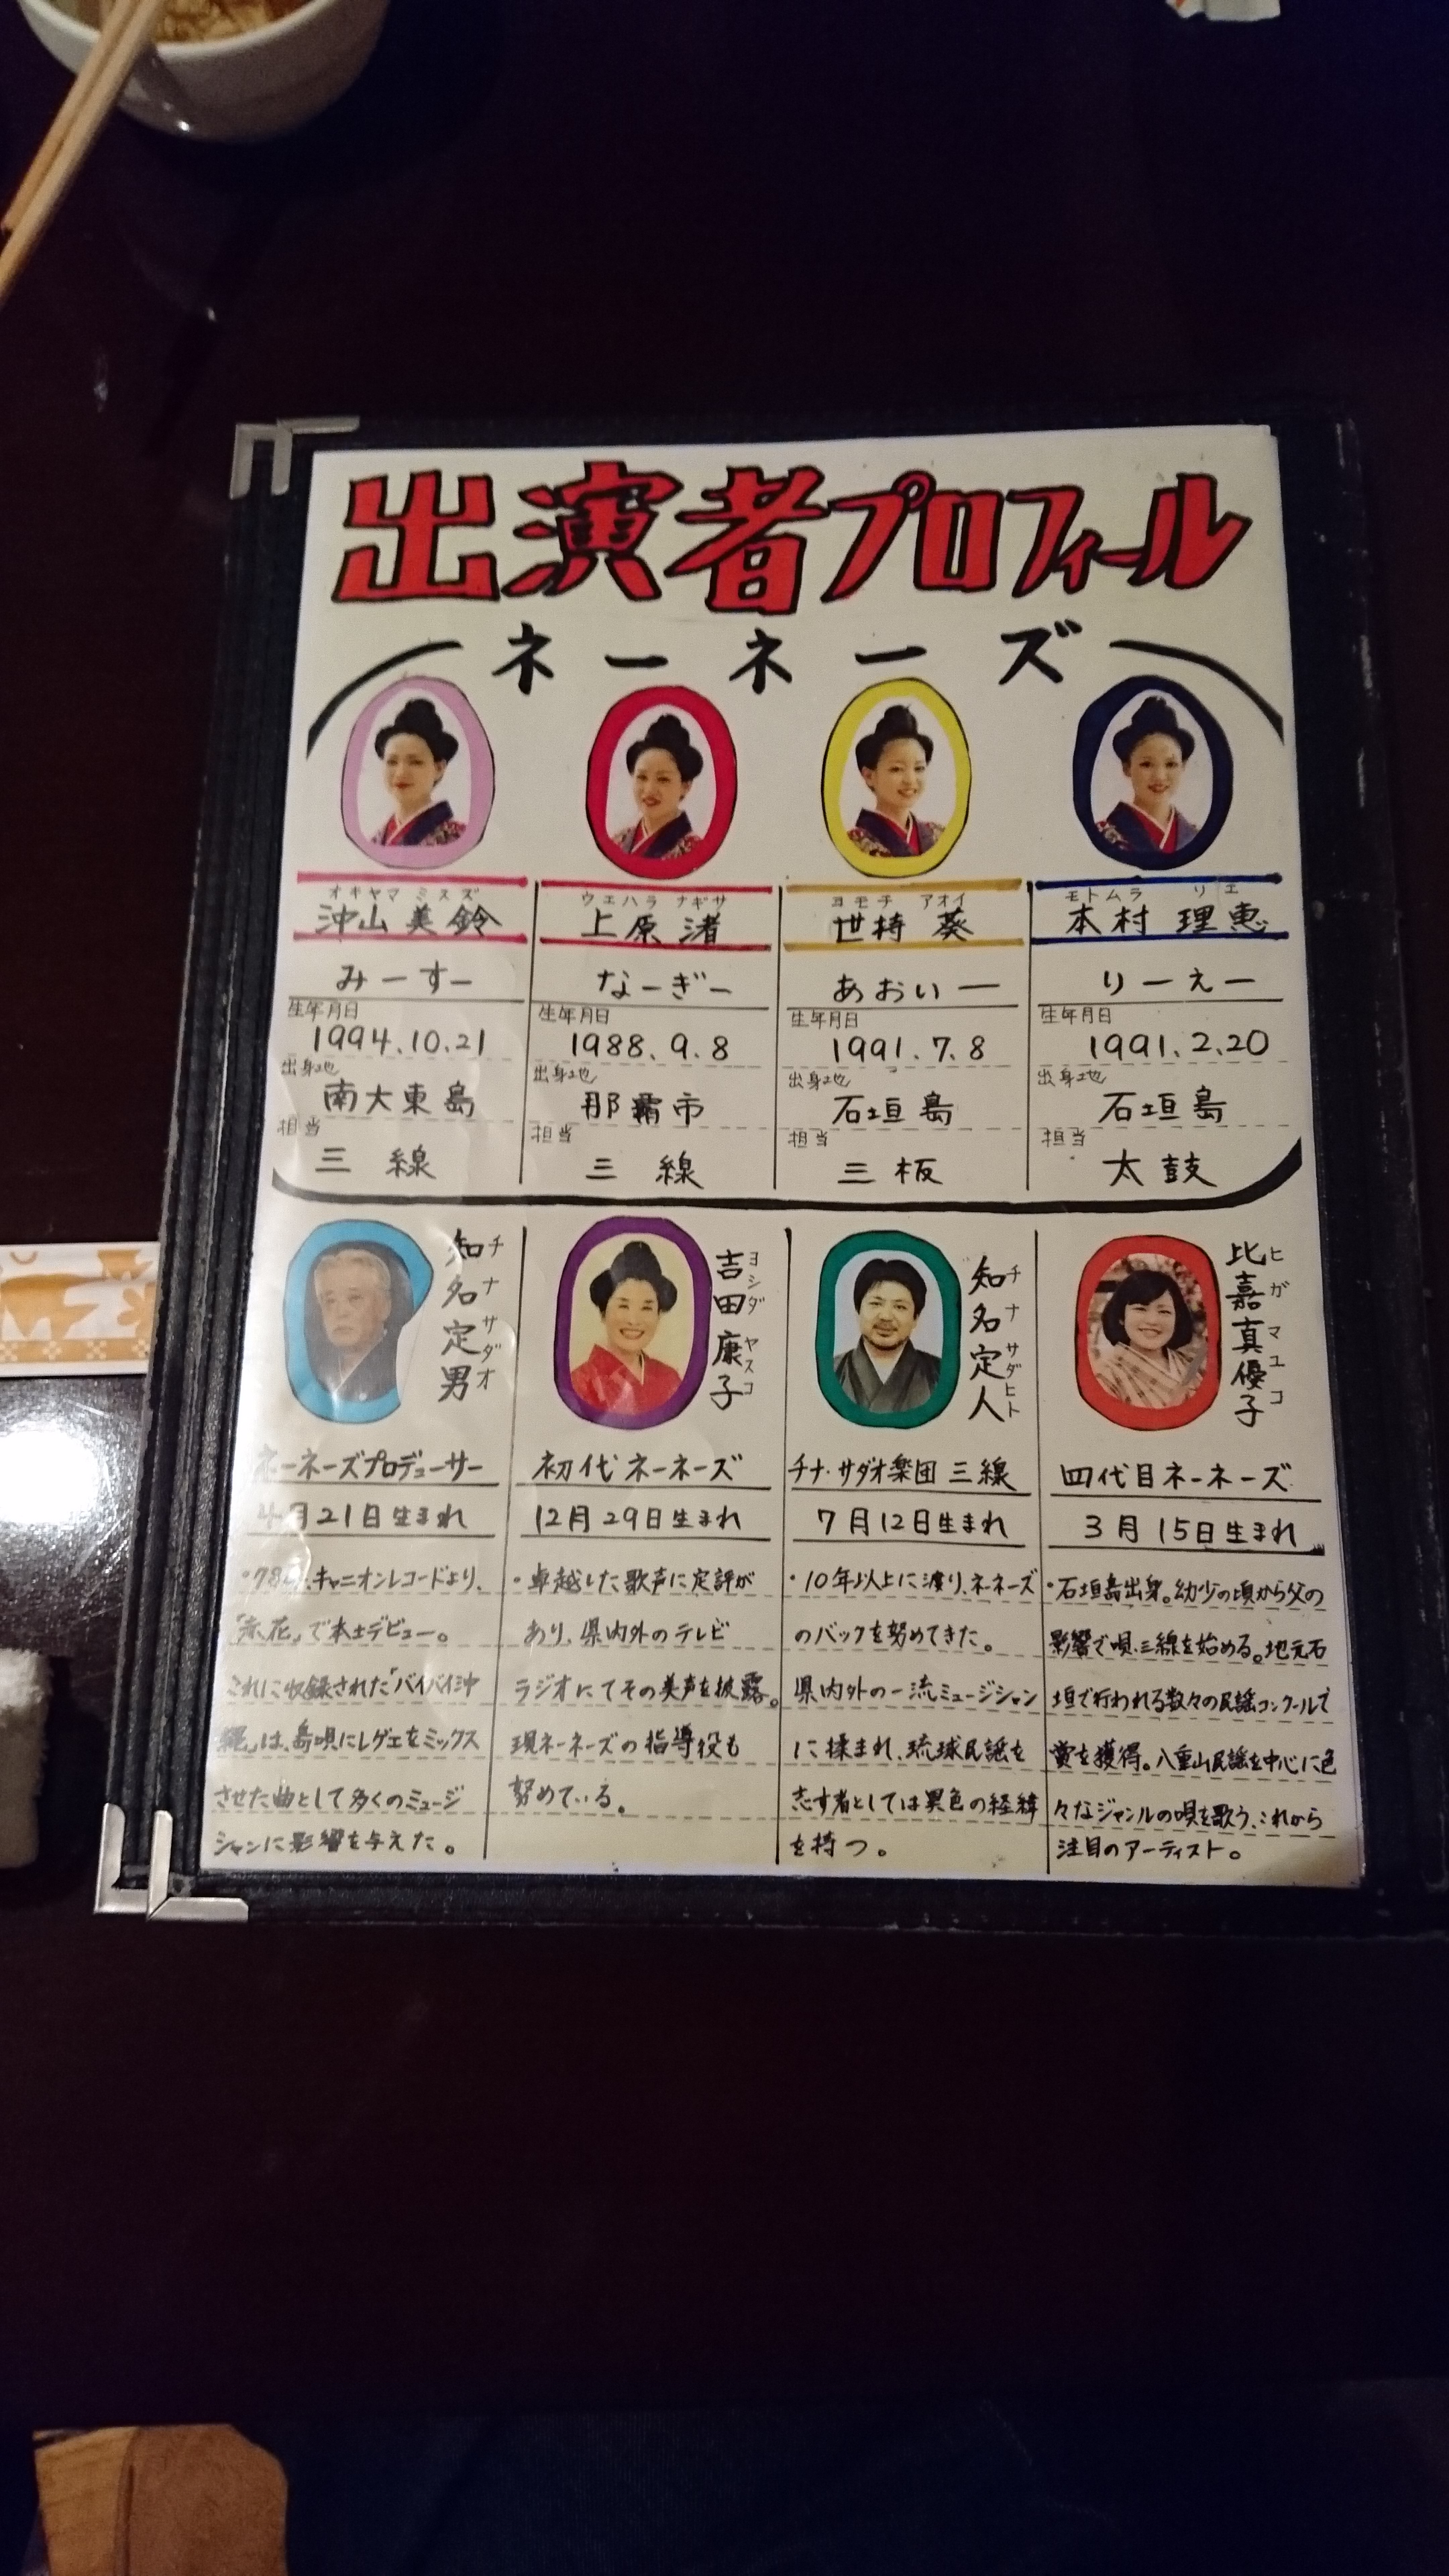 出演者プロフィール
ネーネーズ
オキヤマ ミスズ
沖山 美鈴
みーすー
生年月日
1994.10.21
出身地
南大東島
担当
三 線
ウエハラ ナギサ
上原 渚
なーぎー
生年月日
1988.9.8
出身地
那覇市
担当
三 線
ヨモチ アオイ
世持 葵
あおいー
生年月日
1991.7.8
出身地
石垣島
担当
三板
モトムラ リエ
本村 理恵
りーえー
生年月日
1991.2.20
出身地
石垣島
担当
太鼓
知名定男
チナサダオ
ネーネーズプロデューサー
4月21日生まれ
・78年、キャニオンレコードより、
「赤花」で本土デビュー。
これに収録された「バイバイ沖
縄」は、島唄にレゲエをミックス
させた曲として多くのミュージ
シャンに影響を与えた。
吉田康子
ヨシダ ヤスコ
初代ネーネーズ
12月29日生まれ
・卓越した歌声に定評が
あり、県内外のテレビ
ラジオにてその美声を披露。
現ネーネーズの指導役も
努めている。
知名定人
チナ サダヒト
チナ・サダオ楽団 三線
7月12日生まれ
・10年以上に渡り、ネーネーズ
のバックを努めてきた。
県内外の一流ミュージシャン
に揉まれ、琉球民謡を
志す者としては異色の経緯
を持つ。
比嘉真優子
ヒガ マユコ
四代目ネーネーズ
3月15日生まれ
・石垣島出身。幼少の頃から父の
影響で唄、三線を始める。地元石
垣で行われる数々の民謡コンクールで
賞を獲得。八重山民謡を中心に色
々なジャンルの唄を歌う、これから
注目のアーティスト。